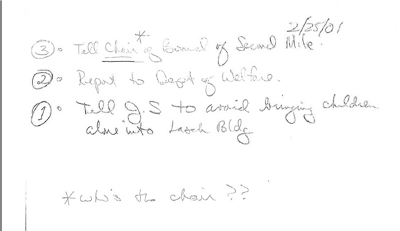 2/25/01
③ • Tell Chair* of Board of Second Mile.
② • Report to Dept of Welfare.
① • Tell J.S to avoid bringing children
alone into Lasch Bldg
* who's the chair ??